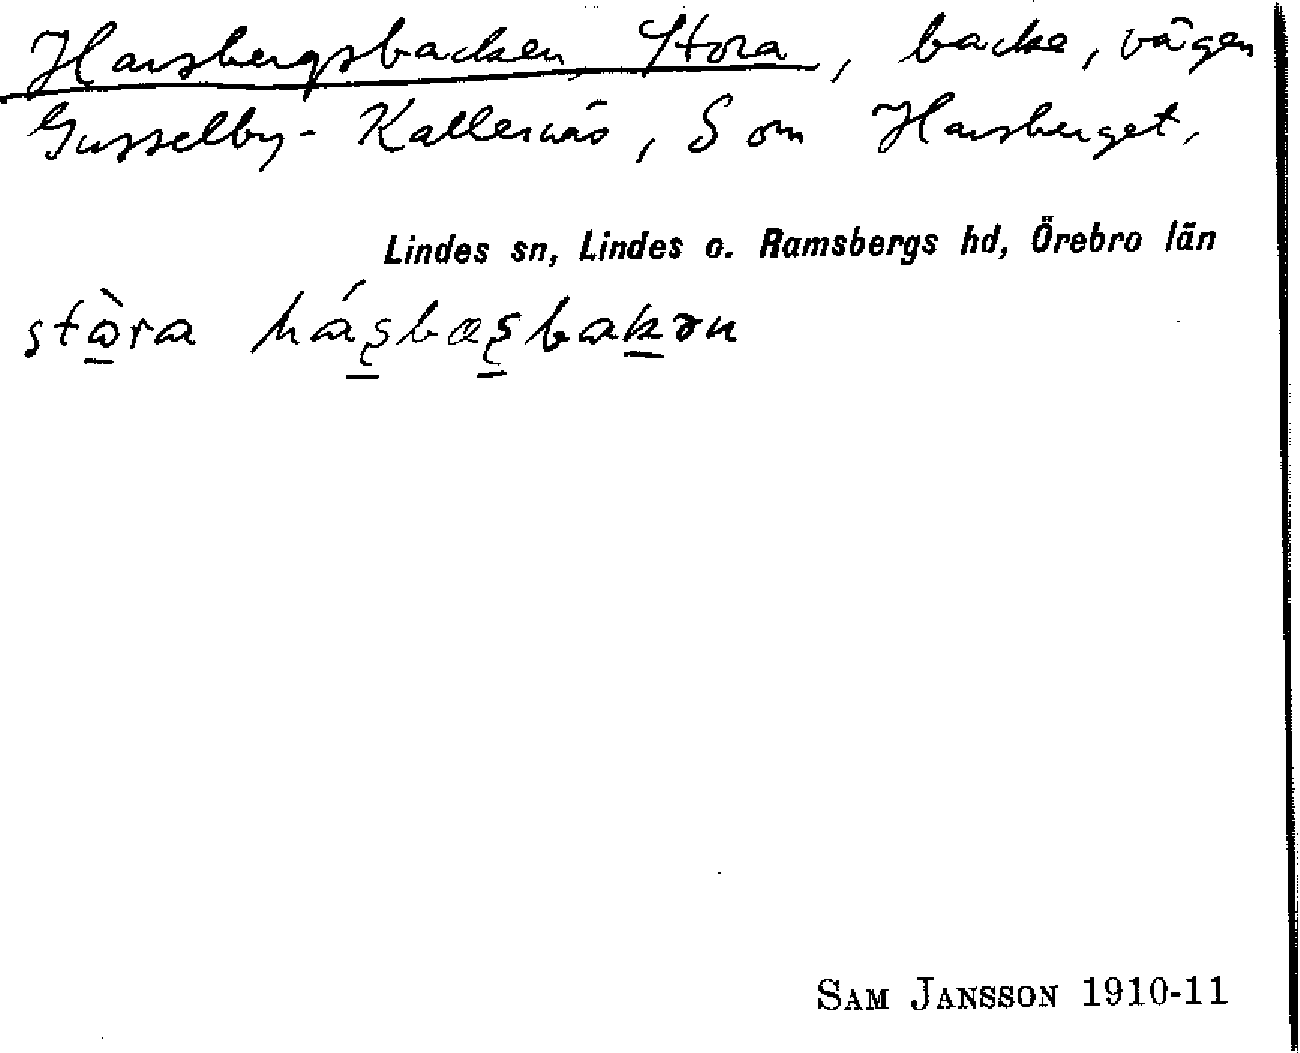 Harsbergsbacken, Stora, backe, vägen
Gusselby - Kallernäs, S om Harsberget.
Lindes sn, Lindes o. Ramsbergs hd, Örebro län
SAM JANSSON 1910-11